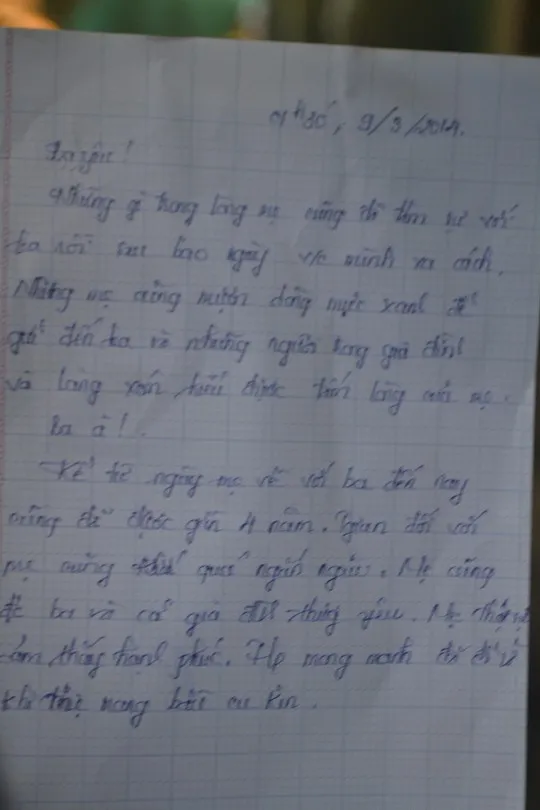 9h30', 9/3/2014.
Ba yêu!
Những gì trong lòng mẹ cũng đã tâm sự với
ba rồi sau bao ngày v/c mình xa cách.
Nhưng mẹ cũng mượn dòng mực xanh để
gửi đến ba và những người trong gia đình
và làng xóm hiểu được lòng của mẹ.
Ba à!.
Kể từ ngày mẹ về với ba đến nay
cũng đã được gần 4 năm. đối với
mẹ cũng quá ngắn ngủi. Mẹ cũng
ba và cả gia đình thương yêu. Mẹ
hạnh phúc. mong manh đã
khi mang